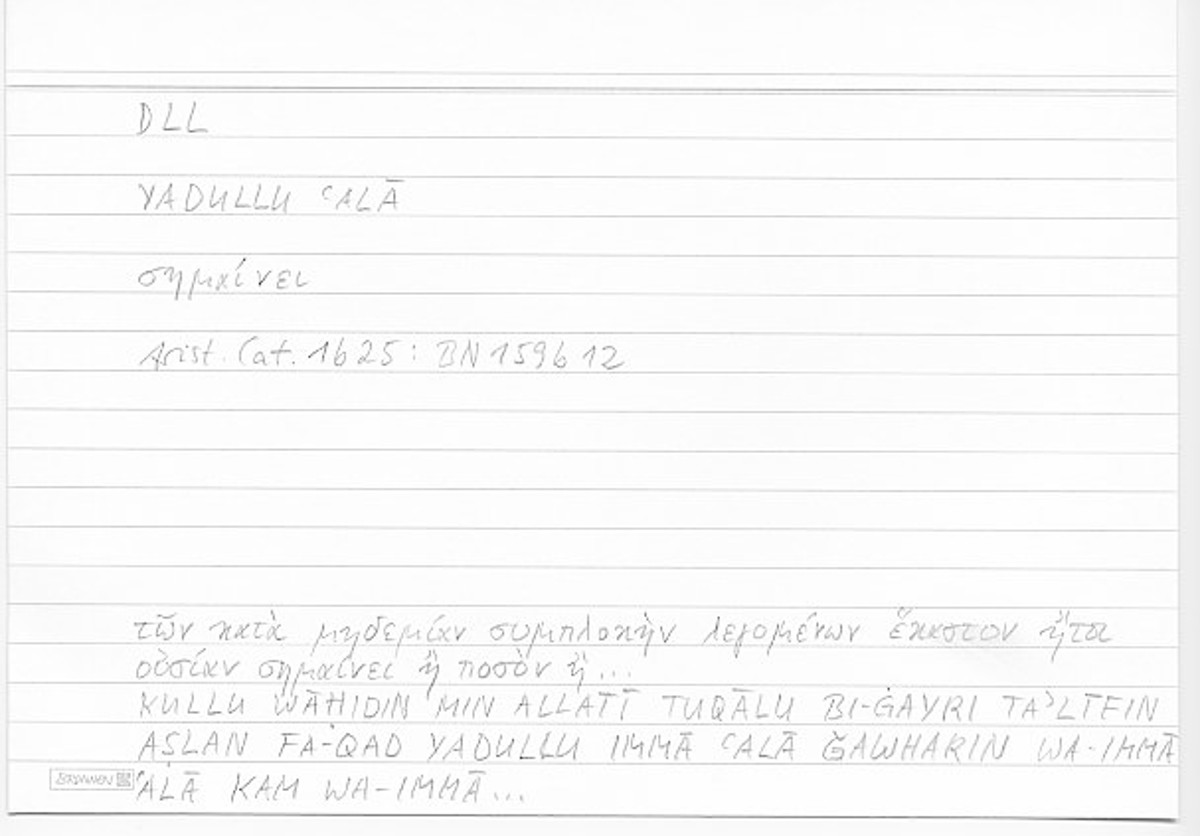 DLL
YADULLU ʿALĀ
σημαίνει
Arist. Cat. 1b25: BN 159b12
τῶν κατὰ μηδεμίαν συμπλοκὴν λεγομένων ἕκαστον ἤτοι
οὐσίαν σημαίνει ἢ ποσὸν ἢ...
KULLU WĀḤIDIN MIN ALLATĪ TUQĀLU BI-ĠAYRI TAʾLĪFIN
AṢLAN FA-QAD YADULLU IMMĀ ʿALĀ ǦAWHARIN WA-IMMĀ
BRUNNEN ʿALĀ KAM WA-IMMĀ...